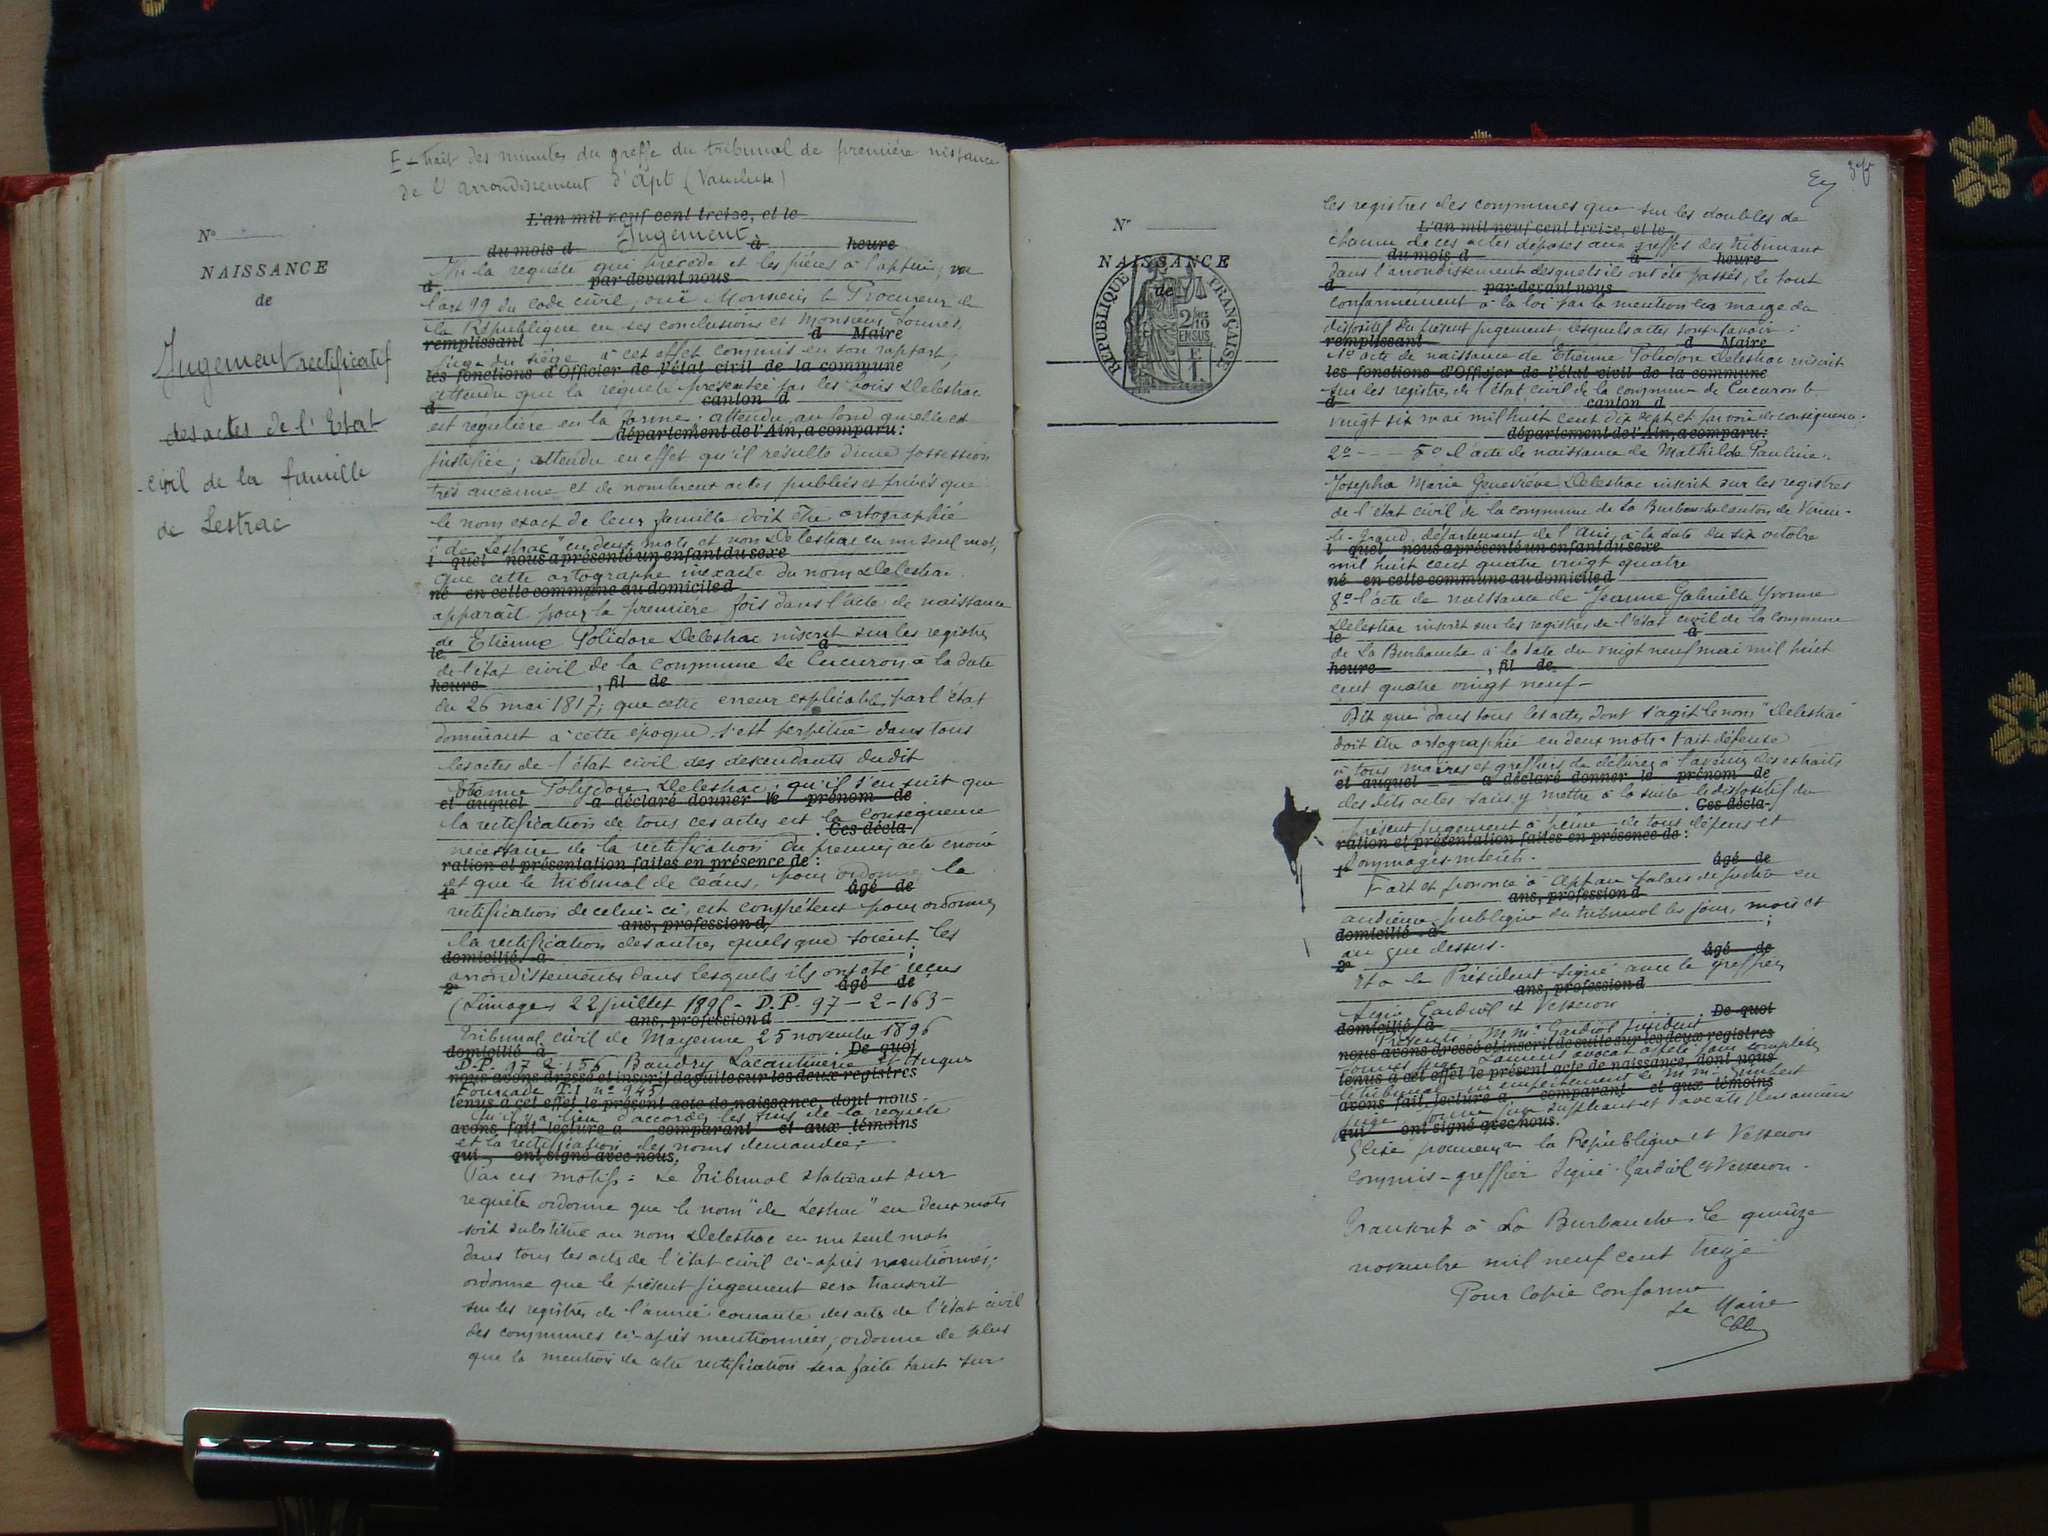 Extrait des minutes du greffe du tribunal de première instance
de l'arrondissement d'Apt (Vaucluse)
L'an mil neuf cent treize, et le
Jugement.
du mois d à heure
Vu la requête qui précède et les pièces à l'appui, vu
d par-devant nous
l'art 99 du code civil, oui Monsieur le Procureur de
la République en ses conclusions et Monsieur
remplissant d Maire
juge du siège à cet effet commis en son rapport,
les fonctions d'Officier de l'état civil de la commune
attendu que la requête présentée par les Delestrac
d canton d
est régulière en la forme; attendu, au fond qu'elle est
département de l'Ain, a comparu:
justifiée; attendu en effet qu'il résulte d'une possession
très ancienne et de nombreux actes publics et privés que
le nom exact de leur famille doit être ortographié
"de Lestrac" en deux mots et non Delestrac en un seul mot,
l quel nous a présenté un enfant du sexe
que cette ortographe inexacte du nom Delestrac
né en cette commune au domicile d
apparait pour la première fois dans l'acte de naissance
de Etienne Polidore Delestrac inscrit sur les registres
le à
de l'état civil de la commune de Cucuron à la date
heure , fil de
du 26 mai 1817; que cette erreur explicable par l'état
dominant à cette époque s'est perpétué dans tous
les actes de l'état civil des descendants du dit
Etienne Polydore Delestrac; qu'il s'en suit que
et auquel a déclaré donner le prénom de
la rectification de tous ces actes est la conséquence
Ces décla-
nécessaire de la rectification du premier acte erroné
ration et présentation faites en présence de:
et que le tribunal de céans, pour ordonner la
1° âgé de
rectification de celui-ci, est compétent pour ordonner
ans, profession d
la rectification des autres quels que soient les
domicilié à ;
arrondissements dans lesquels ils ont été reçus
2° âgé de
(Limoges 22 juillet 1895 - D.P. 97 - 2 - 163 -
ans, profession d
Tribunal civil de Mayenne 25 novembre 1896
domicilié à De quoi
D.P. 97 2. 156 Baudry Lacantinerie et Hugues
nous avons dressé et inscrit de suite sur les deux registres
Fourcade T.I n° 945)
tenus à cet effet le présent acte de naissance, dont nous
Qu'il y a lieu d'accorder les fins de la requête
avons fait lecture a comparant et aux témoins
et la rectification des noms demandée;
qui ont signé avec nous.
Par ces motifs: Le Tribunal statuant sur
requête ordonne que le nom "de Lestrac" en deux mots
soit substitué au nom Delestrac en un seul mot
dans tous les actes de l'état civil ci-après mentionnés;
ordonne que le présent jugement sera transcrit
sur les registres de l'année courante des actes de l'état civil
des communes ci-après mentionnées, ordonne de plus
que la mention de cette rectification sera faite tant sur
N°
NAISSANCE
de
Jugement rectificatif
des actes de l'Etat
-civil de la famille
de Lestrac
37
les registres des communes que sur les doubles de
L'an mil neuf cent treize, et le
chacun de ces actes déposés aux greffes des tribunaux
du mois d à heure
dans l'arrondissement desquels ils ont été passés, le tout
d par-devant nous
conformément à la loi par la mention en marge du
dispositif du présent jugement lesquels actes sont savoir:
remplissant d Maire
1° acte de naissance de Etienne Polidore Delestrac inscrit
les fonctions d'Officier de l'état civil de la commune
sur les registres de l'état civil de la commune de Cucuron le
d canton d
vingt six mai mil huit cent dix sept et par voie de conséquence.
département de l'Ain, a comparu:
2° - - - 7° l'acte de naissance de Mathilde Pauline
Josepha Marie Geneviève Delestrac inscrit sur les registres
de l'état civil de la commune de La Burbanche canton de Virieu-
le-Grand, département de l'Ain, à la date du six octobre
l quel nous a présenté un enfant du sexe
mil huit cent quatre vingt quatre
né en cette commune au domicile d
8° l'acte de naissance de Jeanne Gabrielle Yvonne
Delestrac inscrit sur les registres de l'état civil de la commune
le à
de La Burbanche à la date du vingt neuf mai mil huit
heure , fil de
cent quatre vingt neuf -
Dit que dans tous les actes dont s'agit le nom "Delestrac"
doit être ortographié en deux mots. Fait défense
à tous maires et greffiers de délivrer à l'avenir des extraits
et auquel a déclaré donner le prénom de
des dits actes sans y mettre à la suite le dispositif du
Ces décla-
présent jugement à peine de tous dépens et
ration et présentation faites en présence de:
dommages-intérêts.
1° âgé de
Fait et prononcé à Apt au palais de justice en
ans, profession d
audience publique du tribunal les jour, mois et
domicilié à ;
an que dessus.
2° âgé de
Et a le Président signé avec le greffier
ans, profession d
Signé Gardiol et Vesseron
domicilié à De quoi
Présents: M.M. Gardiol président
nous avons dressé et inscrit de suite sur les deux registres
juge, Laurens avocat appelé pour compléter
tenus à cet effet le présent acte de naissance, dont nous
le tribunal en empêchement de M.M.
avons fait lecture a comparant et aux témoins
juge suppléant et d'avocats plus anciens
qui ont signé avec nous.
procureur de la République et Vesseron
commis-greffier signé: Gardiol et Vesseron.
Transcrit à La Burbanche le quinze
novembre mil neuf cent treize
Pour Copie Conforme
Le Maire
N°
NAISSANCE
de
RÉPUBLIQUE FRANÇAISE
2/10
EN SUS